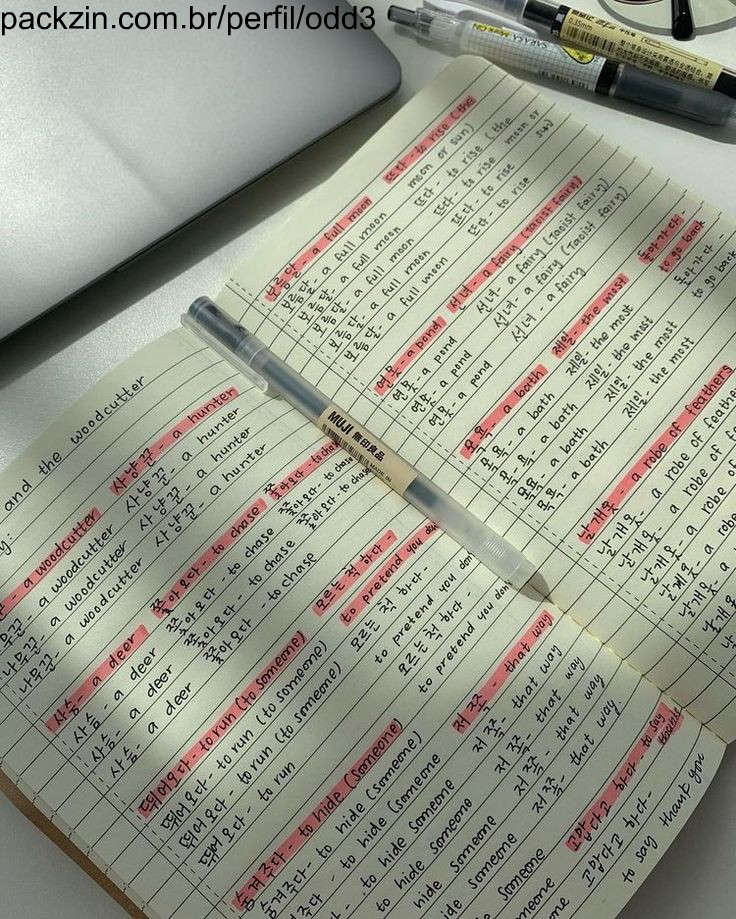 packzin.com.br/perfil/odd3
SARASA
Mark On
0.5mm
and the woodcutter
사냥꾼 - a hunter
사냥꾼 - a hunter
사냥꾼 - a hunter
사냥꾼 - a hunter
- a woodcutter
a woodcutter
나무꾼 - a woodcutter
나무꾼 - a woodcutter
쫓아오다 - to chase
쫓아오다 - to chase
쫓아오다 - to chase
쫓아오다 - to chase
사슴 - a deer
사슴 - a deer
사슴 - a deer
사슴 - a deer
모르는 척 하다 -
to pretend you don
모르는 척 하다 -
to pretend you don
모르는 척 하다 -
to pretend you don
뛰어오다 - to run (to someone)
뛰어오다 - to run (to someone)
뛰어오다 - to run (to someone)
뛰어오다 - to run
저쪽 - that way
저쪽 - that way
저쪽 - that way
저쪽 - that way
숨겨주다 - to hide (someone)
숨겨주다 - to hide (someone)
- to hide (someone
- to hide someone
to hide someone
hide someone
someone
고맙다고 하다 - to say
고맙다고 하다 -
to say thank you
MUJI 無印良品
MADE IN
뜨다 - to rise (the
moon or sun)
뜨다 - to rise (the
moon or sun)
뜨다 - to rise
뜨다 - to rise
뜨다 - to rise
보름달 - a full moon
보름달 - a full moon
보름달 - a full moon
보름달 - a full moon
보름달 - a full moon
선녀 - a fairy (Taoist fairy)
선녀 - a fairy (Taoist fairy)
선녀 - a fairy (Taoist fairy)
선녀 - a fairy
연못 - a pond
연못 - a pond
연못 - a pond
연못 - a pond
돌아가다 -
to go back
돌아가다 -
to go back
제일 - the most
제일 - the most
제일 - the most
제일 - the most
제일 - the most
목욕 - a bath
목욕 - a bath
목욕 - a bath
목욕 - a bath
목욕 - a bath
날개옷 - a robe of feathers
날개옷 - a robe of feathe
날개옷 - a robe of
날개옷 - a robe
날개옷 - a